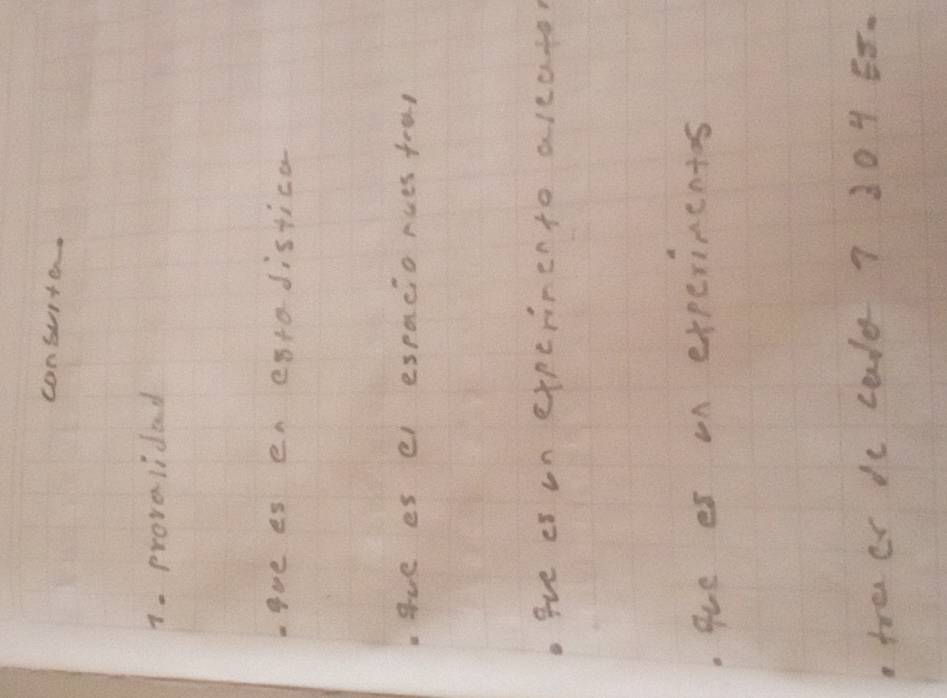 consulta.
1. provalidad
. que es en estadistica
. que es el espacio muestral
. que es un experimento aleator
. que es un experimentos
. traer de cada 1 3 o 4 Ej.